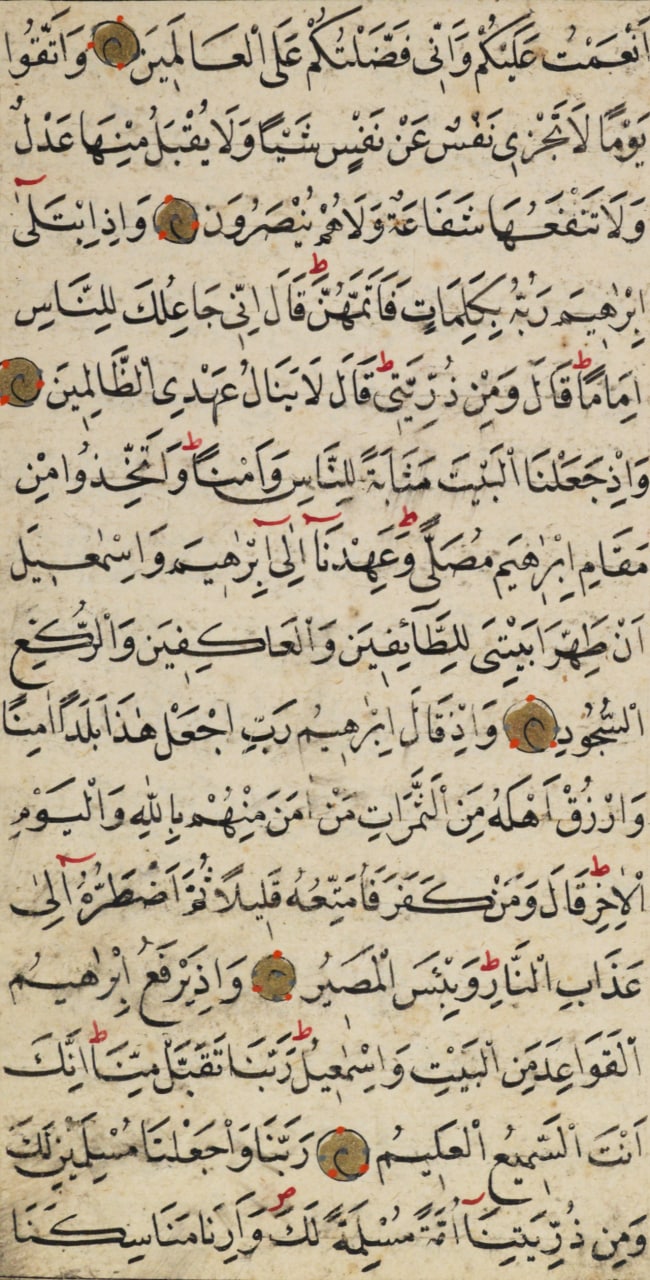 اَنْعَمْتُ عَلَيْكُمْ وَاَنِّى فَضَّلْتُكُمْ عَلَى الْعَالَمِينَ وَاتَّقُوا
يَوْمًا لَا تَجْزِى نَفْسٌ عَنْ نَفْسٍ شَيْـًٔا وَلَا يُقْبَلُ مِنْهَا عَدْلٌ
وَلَا تَنْفَعُهَا شَفَاعَةٌ وَلَا هُمْ يُنْصَرُونَ وَاِذِ ابْتَلٰٓى
اِبْرٰهِيمَ رَبُّهُ بِكَلِمَاتٍ فَاَتَمَّهُنَّ ط قَالَ اِنِّى جَاعِلُكَ لِلنَّاسِ
اِمَامًا ط قَالَ وَمِنْ ذُرِّيَّتِى ط قَالَ لَا يَنَالُ عَهْدِى الظَّالِمِينَ
وَاِذْ جَعَلْنَا الْبَيْتَ مَثَابَةً لِلنَّاسِ وَاَمْنًا ط وَاتَّخِذُوا مِنْ
مَقَامِ اِبْرٰهِيمَ مُصَلًّى ط وَعَهِدْنَٓا اِلٰٓى اِبْرٰهِيمَ وَاِسْمٰعِيلَ
اَنْ طَهِّرَا بَيْتِىَ لِلطَّٓائِفِينَ وَالْعَاكِفِينَ وَالرُّكَّعِ
السُّجُودِ وَاِذْ قَالَ اِبْرٰهِيمُ رَبِّ اجْعَلْ هٰذَا بَلَدًا اٰمِنًا
وَارْزُقْ اَهْلَهُ مِنَ الثَّمَرَاتِ مَنْ اٰمَنَ مِنْهُمْ بِاللّٰهِ وَالْيَوْمِ
الْاٰخِرِ ط قَالَ وَمَنْ كَفَرَ فَاُمَتِّعُهُ قَلِيلًا ثُمَّ اَضْطَرُّهُ اِلٰٓى
عَذَابِ النَّارِ ط وَبِئْسَ الْمَصِيرُ وَاِذْ يَرْفَعُ اِبْرٰهِيمُ
الْقَوَاعِدَ مِنَ الْبَيْتِ وَاِسْمٰعِيلُ ط رَبَّنَا تَقَبَّلْ مِنَّا ط اِنَّكَ
اَنْتَ السَّمِيعُ الْعَلِيمُ رَبَّنَا وَاجْعَلْنَا مُسْلِمَيْنِ لَكَ
وَمِنْ ذُرِّيَّتِنَٓا اُمَّةً مُسْلِمَةً لَكَ ص وَاَرِنَا مَنَاسِكَنَا